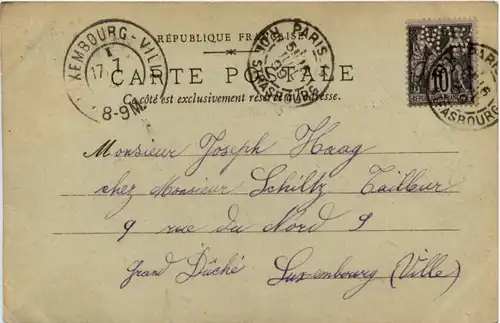 RÉPUBLIQUE FRANÇAISE
CARTE POSTALE
Ce côté est exclusivement réservé à l'adresse.
LUXEMBOURG-VILLE
17.7
8-9
PARIS
R. DE STRASBOURG
PARIS
STRASBOURG
10
Monsieur Joseph Haag
chez Monsieur Schiltz Tailleur
9 rue du Nord 9
Grand Dûché Luxembourg (Ville)